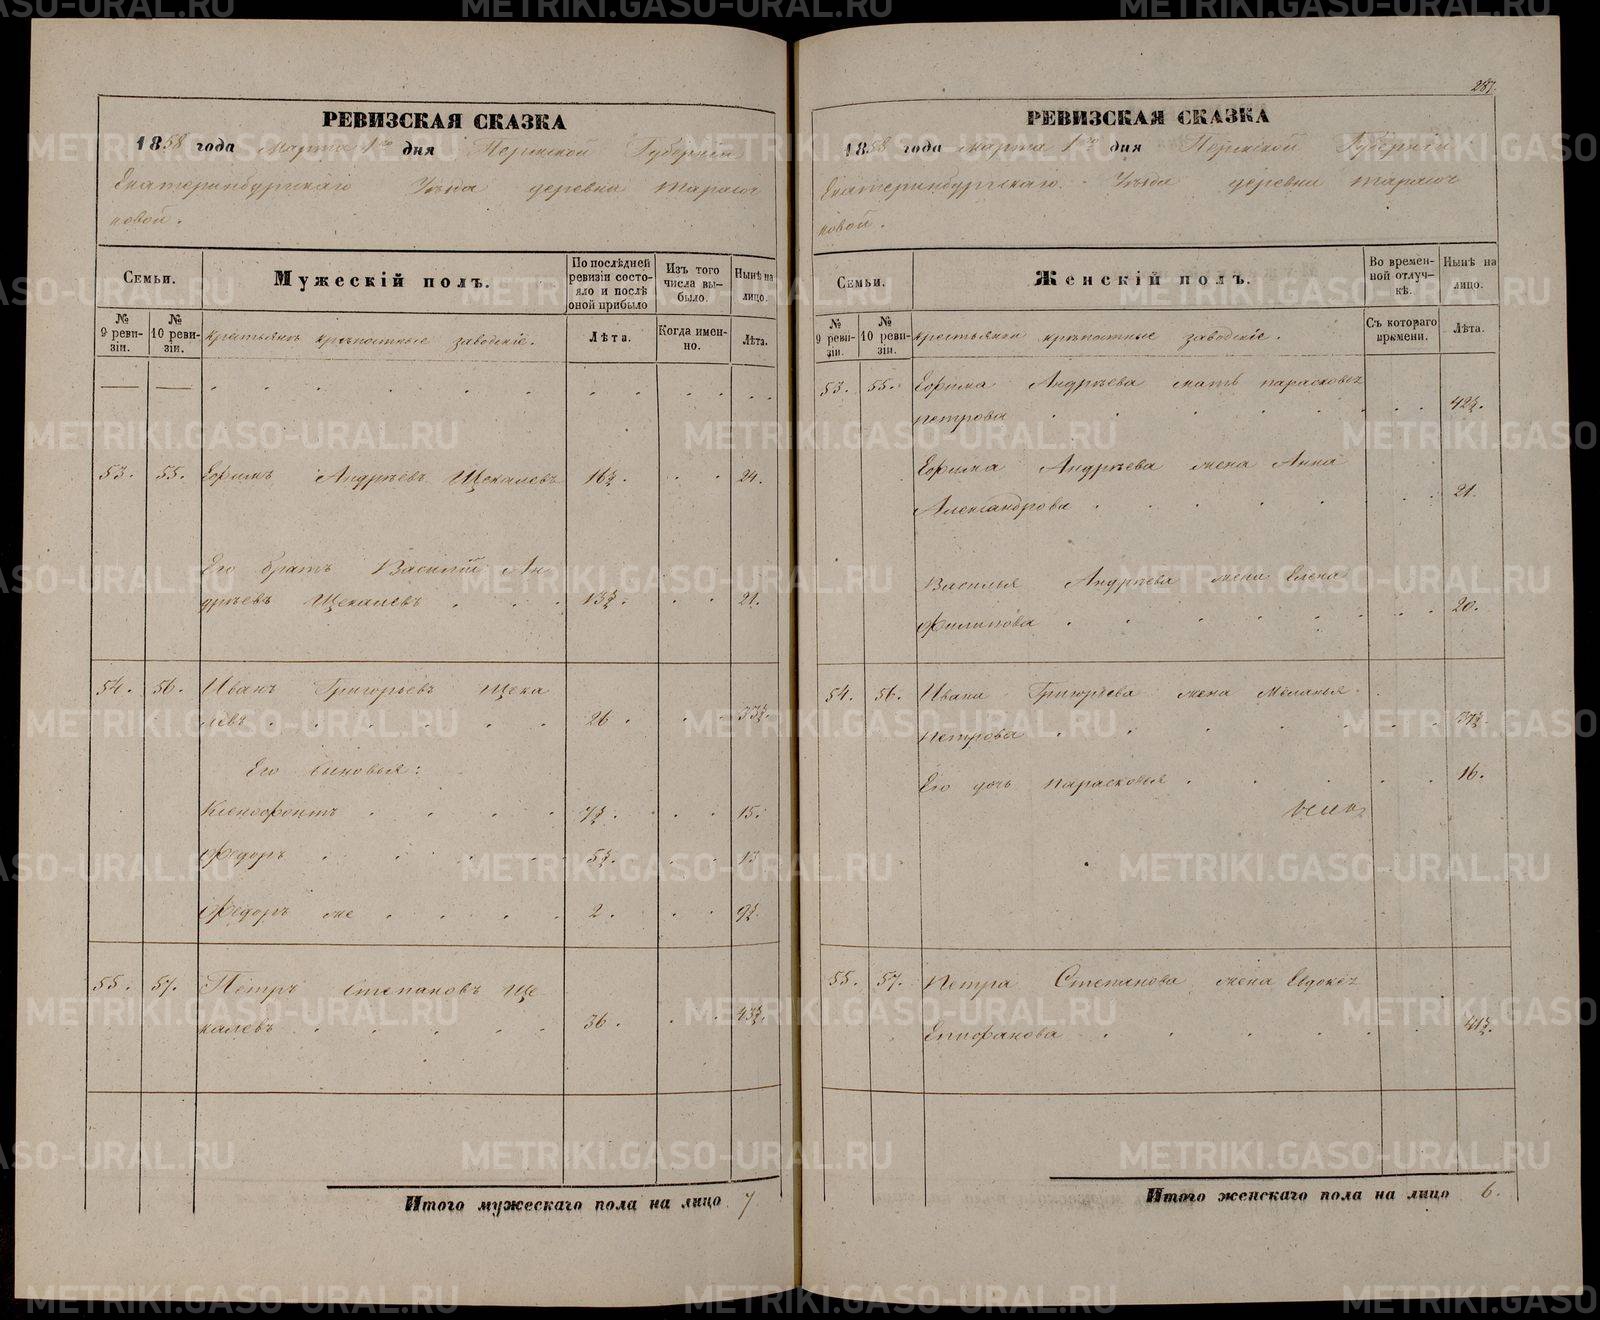 РЕВИЗСКАЯ СКАЗКА
1858 года Марта 1го дня Пермской Губерніи
Екатеринбургскаго Уѣзда деревни Тарасо
повой.
Семьи.
Мужескій полъ.
По послѣдней ревизіи состояло и послѣ оной прибыло
Изъ того числа выбыло.
Нынѣ на лицо.
№ 9 ревизіи.
№ 10 ревизіи.
крѣпостные заводскіе.
Лѣта.
Когда именно.
Лѣта.
53. 55. Ефимъ Андрѣевъ Щекалевъ 16½. 24.
Его братъ Василій Ан
дрѣевъ Щекалевъ 13½. 21.
54. 56. Иванъ Григорьевъ Щека
левъ 26. 33½.
Его сыновья:
Ксенофонтъ 7½. 15.
Федоръ 5½. 13
Федоръ же 2. 9½.
55. 57. Петръ Степановъ Ще
калевъ 36. 43½.
Итого мужескаго пола на лицо 7
287.
РЕВИЗСКАЯ СКАЗКА
1858 года марта 1го дня Пермской Губерніи
Екатеринбургскаго Уѣзда деревни Тарасо
повой.
Семьи.
Женскій полъ.
Во временной отлучкѣ.
Нынѣ на лицо.
№ 9 ревизіи.
№ 10 ревизіи.
крестьянки крѣпостные заводскіе.
Съ котораго времени.
Лѣта.
53. 55. Ефима Андрѣева мать Парасковья
петрова 42½.
Ефима Андрѣева жена Анна
Александрова 21.
Василья Андрѣева жена Елена
Филипова 20.
54. 56. Ивана Григорьева жена Меланья
Петрова 37½.
Его дочь Парасковья 16.
55. 57. Петра Степанова жена Евдокея
Епифанова 41½.
Итого женскаго пола на лицо 6.
METRIKI.GASO-URAL.RU